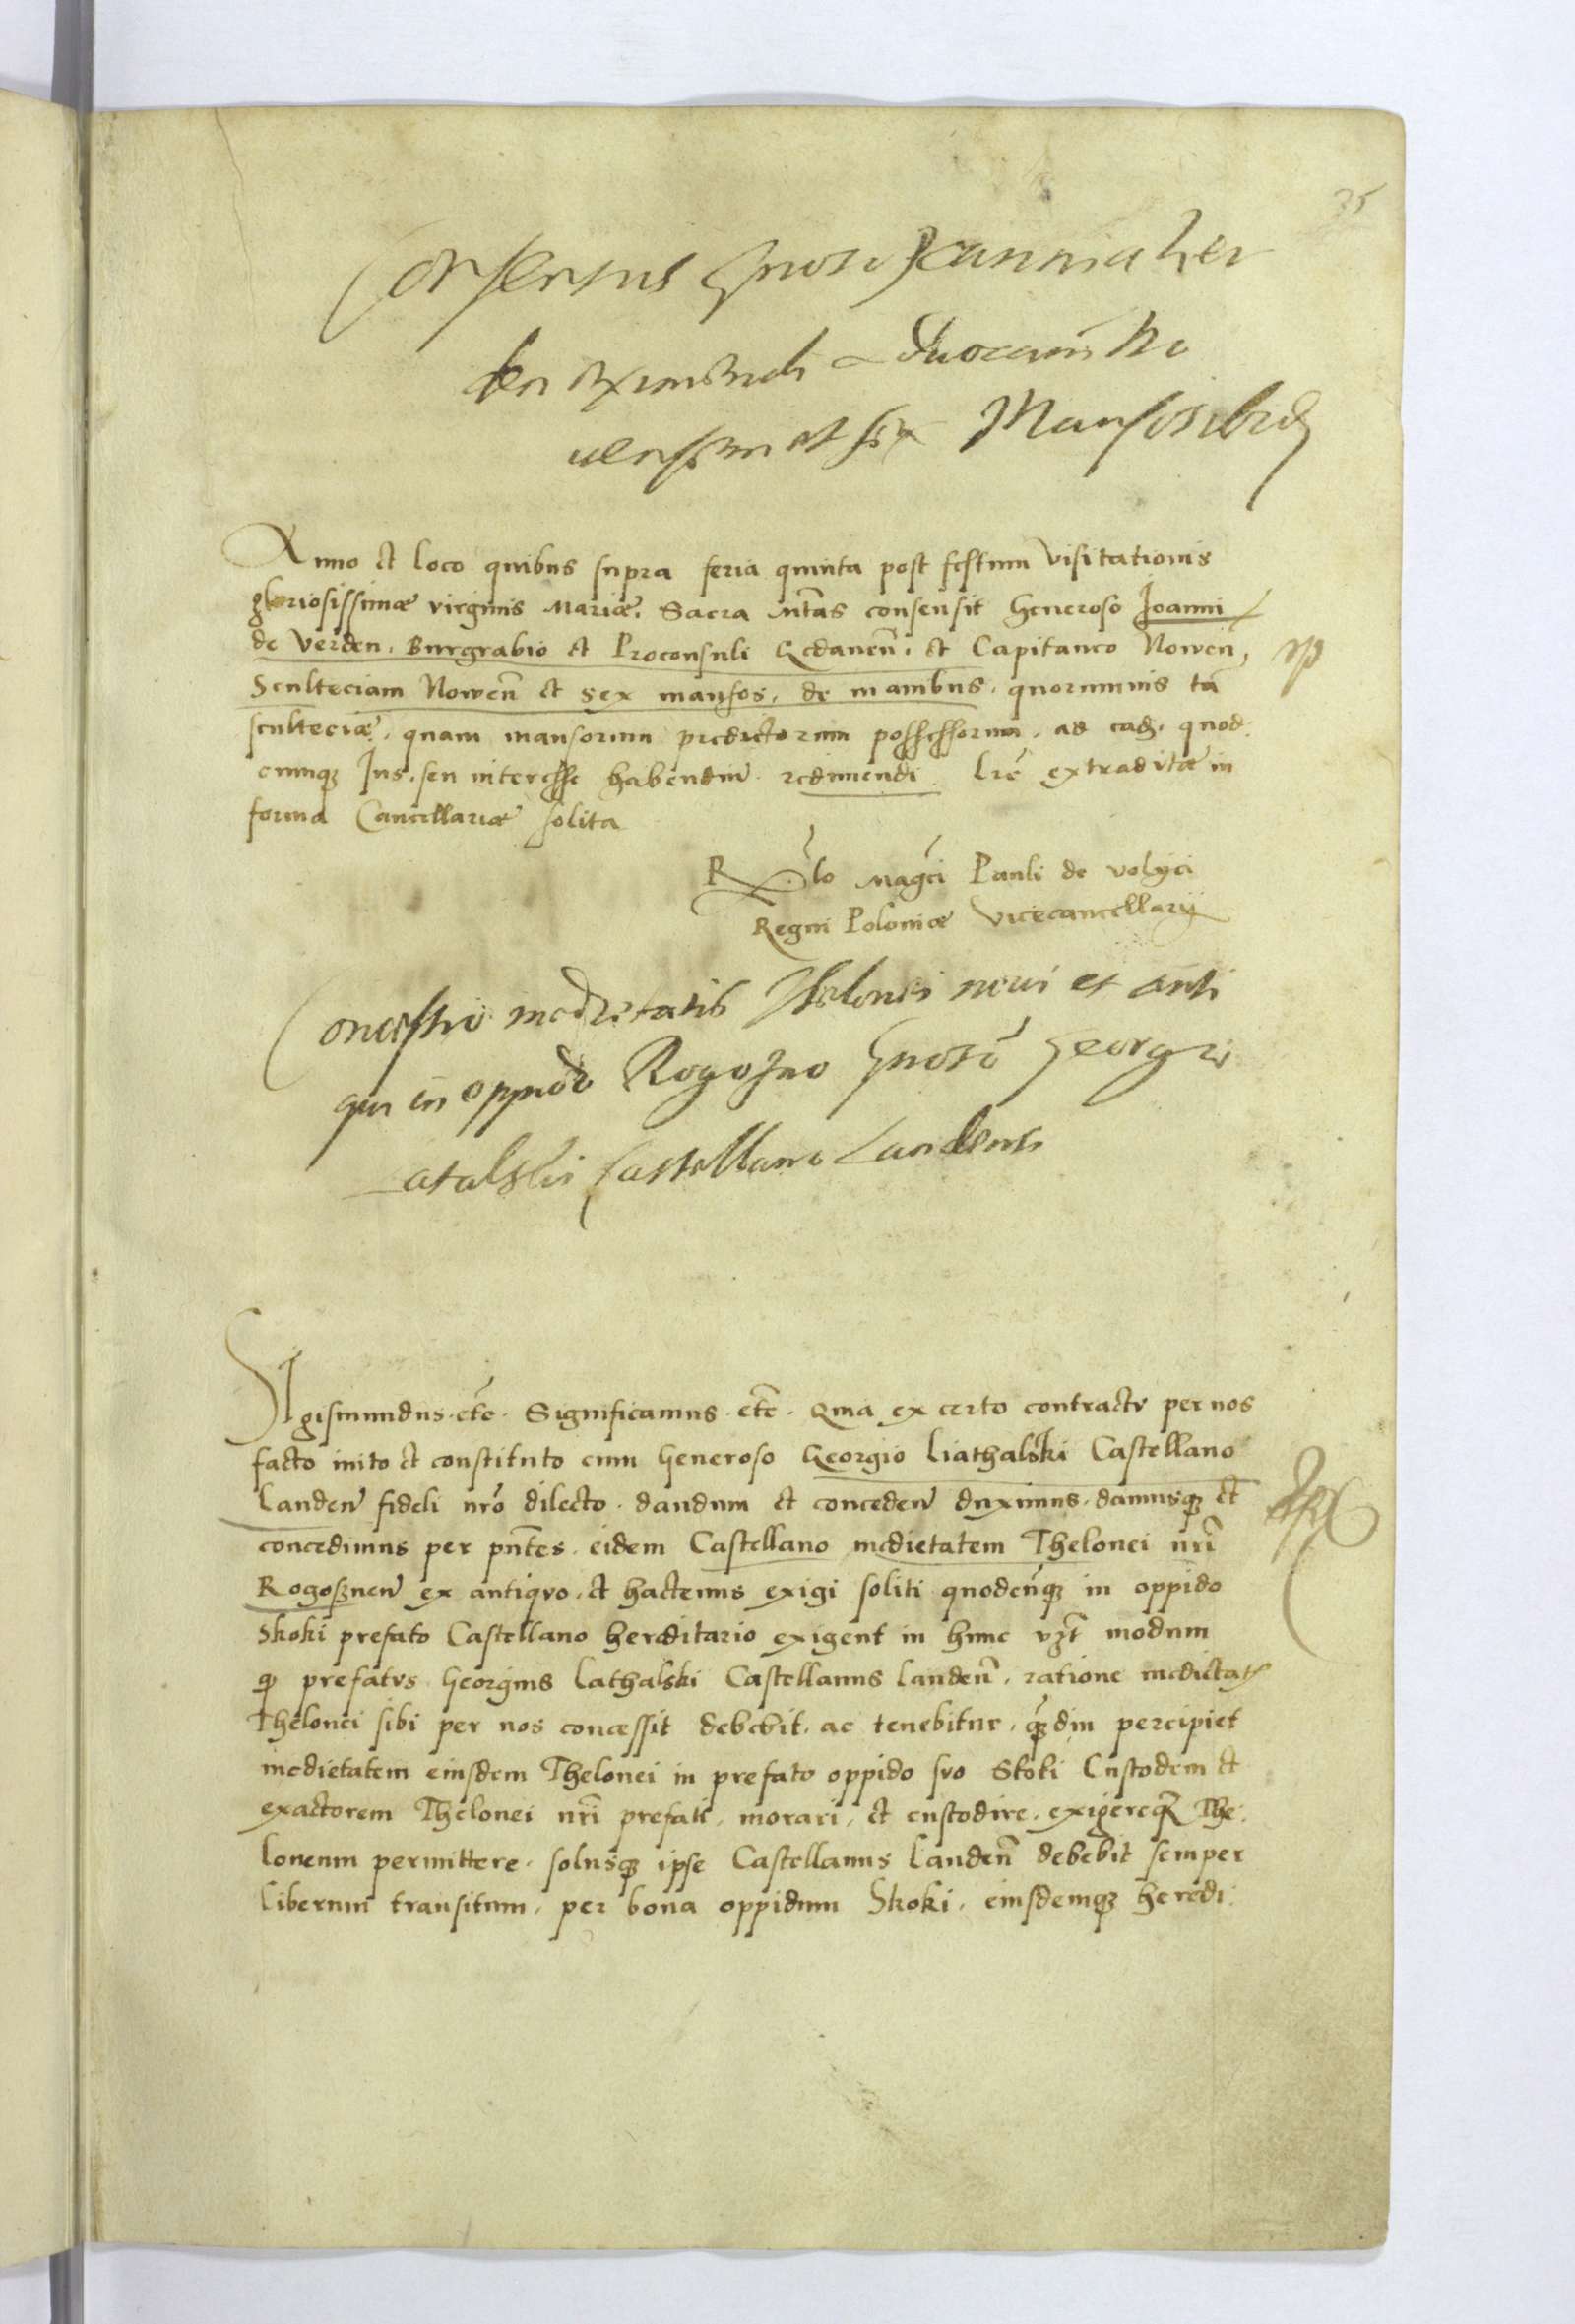 35
Consensus Gnoso Joanni a Ver
den redimendi Advocatiam No
uensem et sex Mansos ibidem
Anno et loco quibus supra feria quinta post festum Visitationis
gloriosissimæ virginis Mariæ. Sacra Mtas consensit Generoso Joanni
de Verden, Burgrabio et Proconsuli Gedanen, et Capitaneo Nowen,
Sculteciam Nowen et sex mansos, de manibus, quorumuis ta
sculteciæ, quam mansorum predictorum possessorum, ad eadem, quod
cunque Jus, seu interesse habendium redimendi Lre extraditæ in
forma Cancellariæ solita
Rlo Magci Pauli de volyci
Regni Poloniæ Vicecancellarij
Concessio medietatis Thelonei noui et anti
qui in oppido Rogozno Gnoso Georgio
Latalski Castellano Landensi
SIgismundus etc. Significamus etc. Quia ex certo contractu per nos
facto inito et constituto cum Generoso Georgio Liathalski Castellano
Landen fideli nro dilecto. dandum et conceden duximus, damusque et
concedimus per pntes. eidem Castellano medietatem Thelonei nri
Rogosznen ex antiquo, et hactenus exigi soliti quodcunque in oppido
Skoki prefato Castellano hereditario exigent in hunc vzt modum
quod prefatus Georgius Lathalski Castellanus Landen, ratione medietatis
Thelonei sibi per nos concessit debebit, ac tenebitur, quamdiu percipiet
medietatem eiusdem Thelonei in prefato oppido suo Skoki Custodem et
exactorem Thelonei nri prefati, morari, et custodire, exigereque The
loneum permittere, solusque ipse Castellanus Landen debebit semper
liberum transitum, per bona oppidum Skoki, eiusdemque heredi